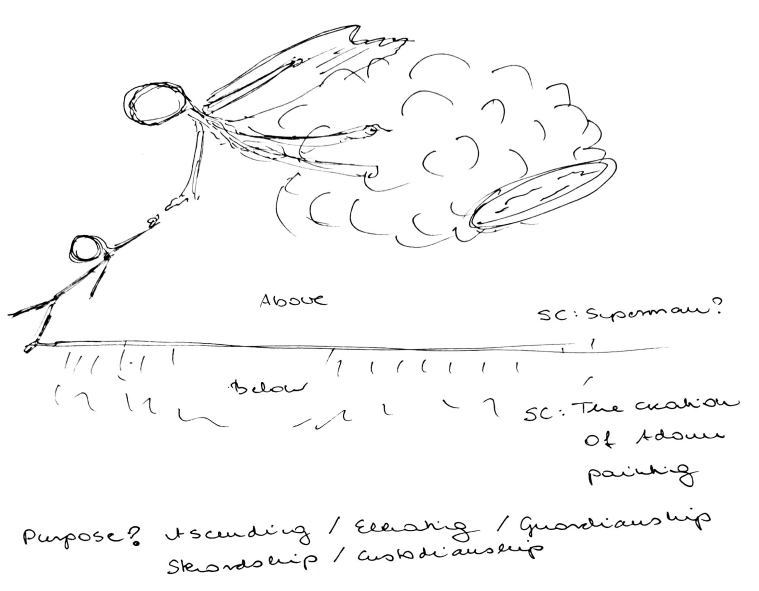 Above
SC: Superman?
Below
SC: The creation
of Adam
painting
Purpose? Ascending / Elevating / Guardianship
Stewardship / Custodianship